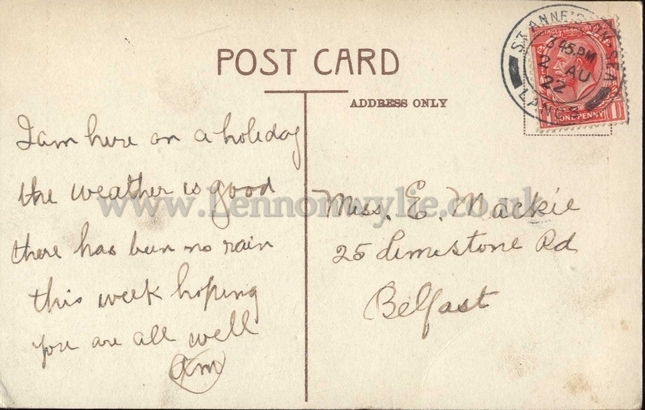 POST CARD
ADDRESS ONLY
ST. ANNE'S-ON-SEA
3 45 PM
2 AU
22
LANCS
ONE PENNY
I am here on a holiday
the weather is good
there has been no rain
this week hoping
you are all well
am
www.Lennonwylie.co.uk
Miss. E. Mackie
25 Limestone Rd
Belfast